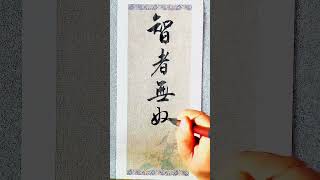 智者無奴